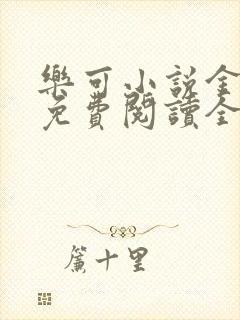 樂可小說全
免費閱讀全
簾十里